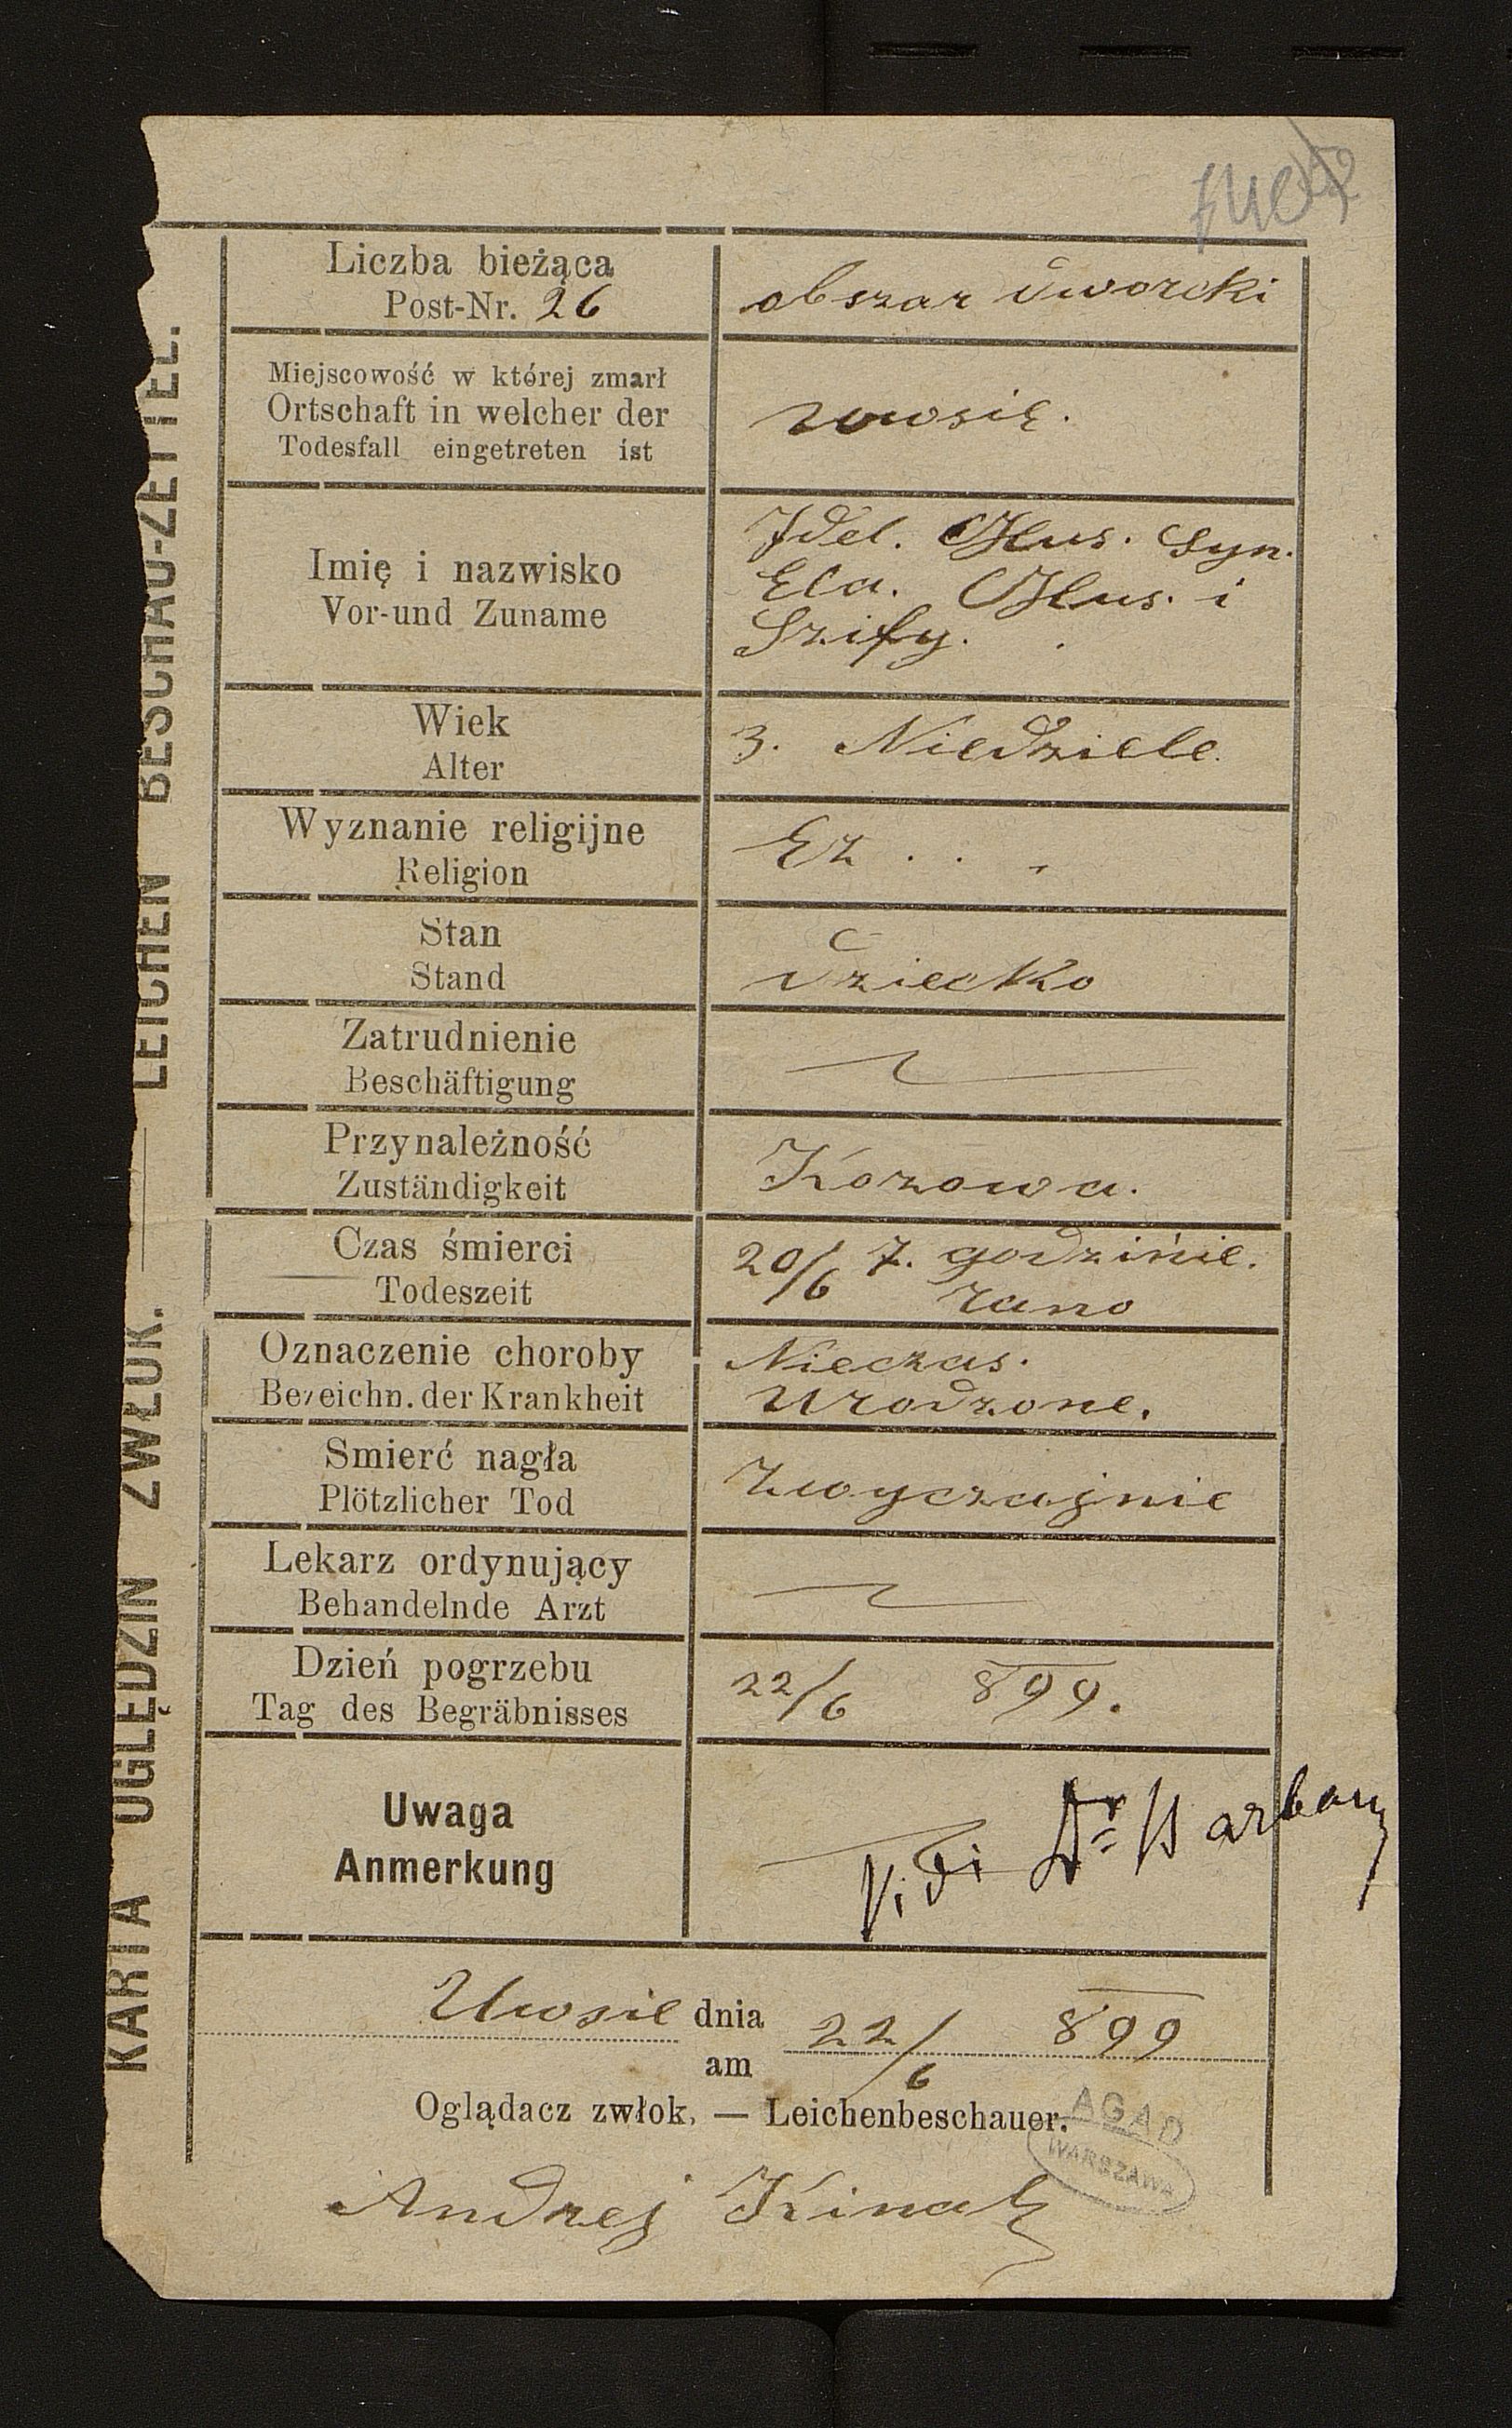 Liczba bieżąca
Post-Nr. 26
obszar dworcki
Miejscowość w której zmarł
Ortschaft in welcher der
Todesfall eingetreten ist
uwosie.
Imię i nazwisko
Vor-und Zuname
Idel. syn.
Ela. i
Szify.
Wiek
Alter
3. Niedziele.
Wyznanie religijne
Religion
Stan
Stand
dziecko
Zatrudnienie
Beschäftigung
Przynależność
Zuständigkeit
Kozowa.
Czas śmierci
Todeszeit
20/6 7. godzinie.
rano
Oznaczenie choroby
Bezeichn. der Krankheit
Nieczas.
urodzone.
Smierć nagła
Plötzlicher Tod
zwyczajnie
Lekarz ordynujący
Behandelnde Arzt
Dzień pogrzebu
Tag des Begräbnisses
22/6 899.
Uwaga
Anmerkung
Vidi Dr Barbary
Uwsie dnia 22/6 899
am
Oglądacz zwłok. — Leichenbeschauer.
Andrej
AGAD
WARSZAWA
KARTA OGLĘDZIN ZWŁOK. — LEICHEN BESCHAU-ZETTEL.